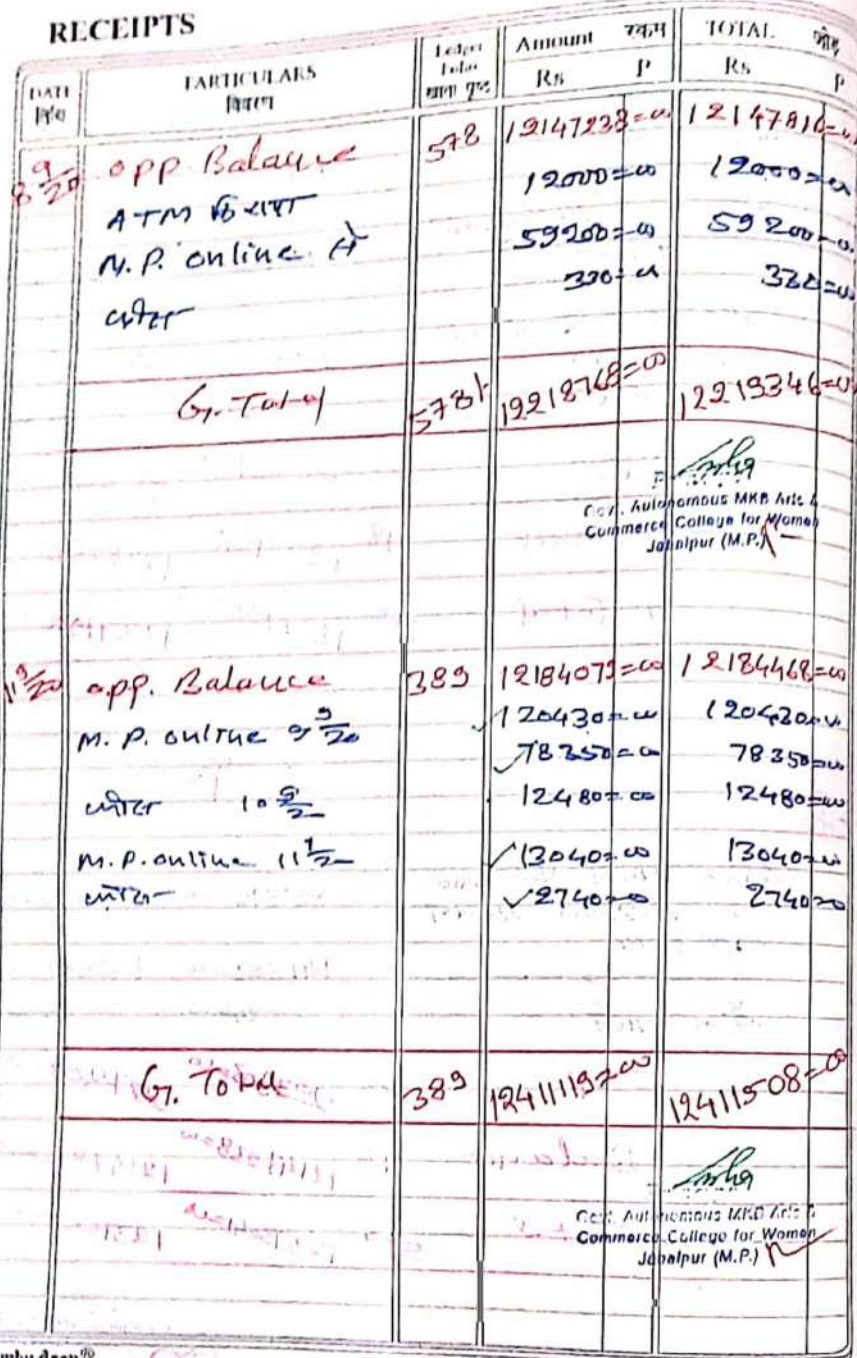 RECEIPTS
DATE PARTICULARS Ledger Folio Amount रकम TOTAL जोड़
तिथि विवरण खाता पृष्ठ Rs P Rs P
8 9/20 opp Balance 578 12147238=00 12147816=00
ATM किराया 12000=00 12000=00
M.P. online से 59200=00 59200=00
330=00 330=00
G. Total 578/ 12218768=00 12219346=00
Govt. Autonomous MKB Arts &
Commerce College for Women
Jabalpur (M.P.)
11 9/20 opp. Balance 389 12184079=00 12184468=00
M.P. online 9 9/20 120430=00 120430=00
78350=00 78350=00
10 9/2 12480=00 12480=00
M.P. online 11 9/2 13040=00 13040=00
2740=00 2740=00
G. Total 389 12411119=00 12411508=00
Govt. Autonomous MKB Arts &
Commerce College for Women
Jabalpur (M.P.)